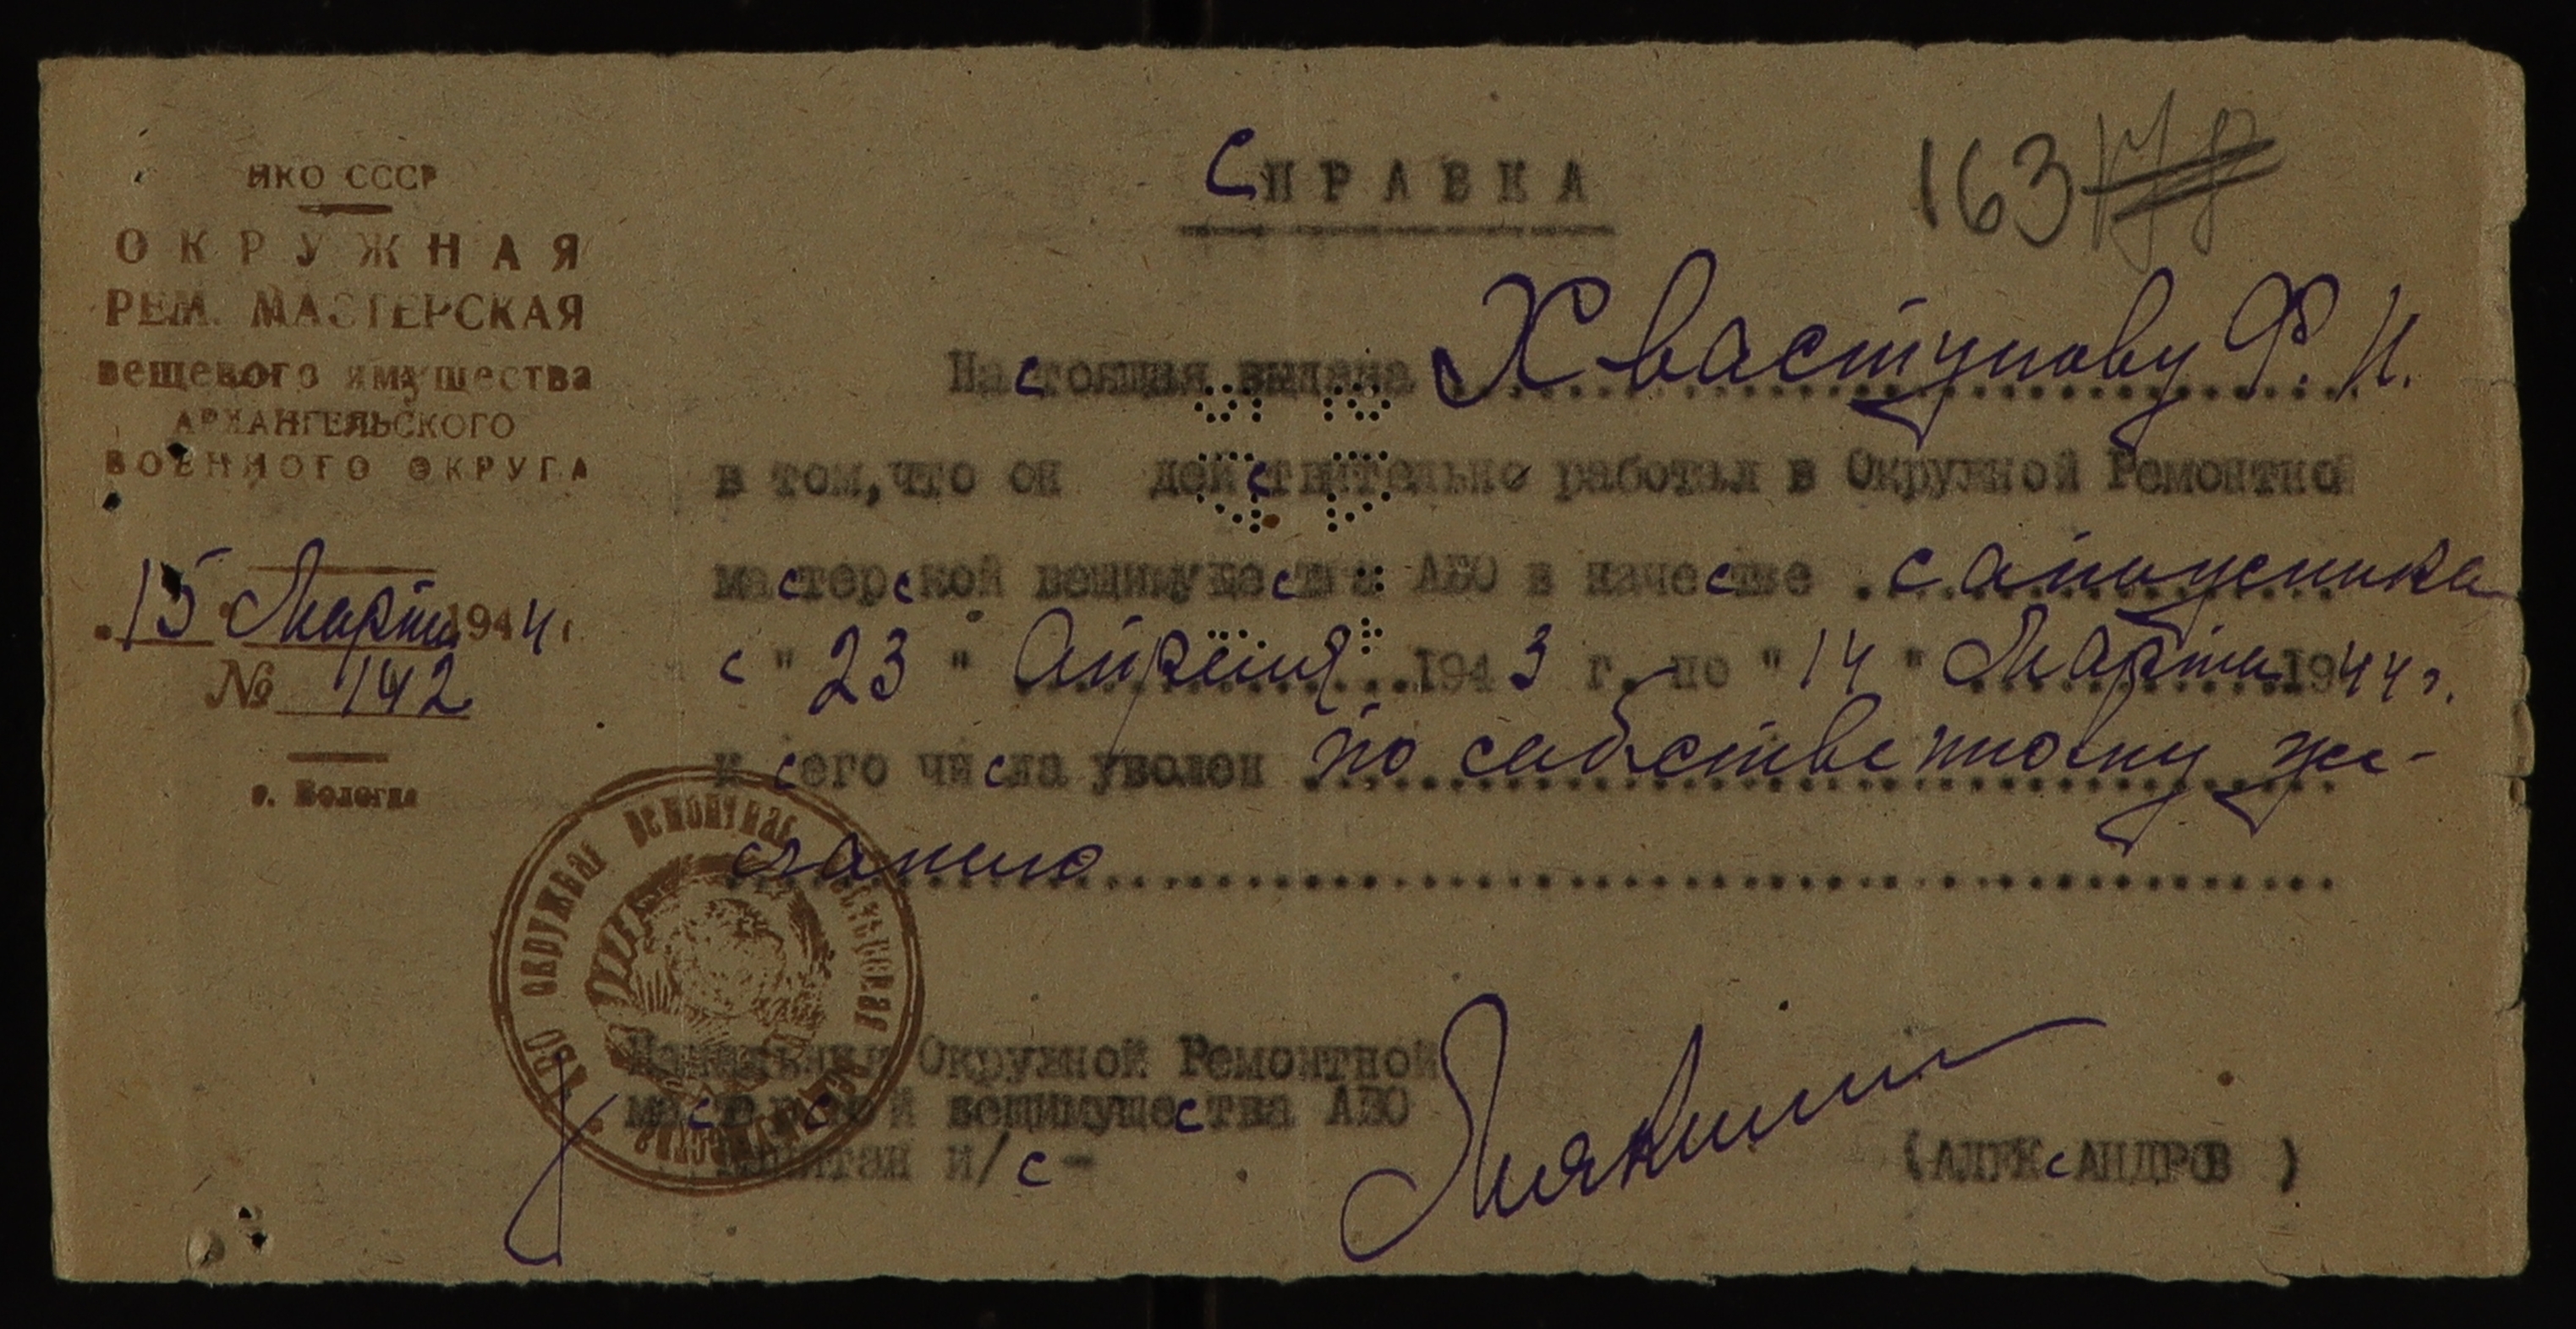 НКО СССР
ОКРУЖНАЯ
РЕМ. МАСТЕРСКАЯ
вещевого имущества
АРХАНГЕЛЬСКОГО
ВОЕННОГО ОКРУГА
15 Марта 1944 г.
№ 142
г. Вологда
СПРАВКА
163
Настоящая выдана Хвастунову Ф. И.
в том, что он действительно работал в Окружной Ремонтной
мастерской вещимущества АВО в качестве сапожника
с "23" Апреля 1943 г. по "14" Марта 1944 г.
и сего числа уволен по собственному же-
ланию
АВО ОКРУЖНАЯ РЕМОНТНАЯ МАСТЕРСКАЯ ВЕЩИМУЩЕСТВА
Начальник Окружной Ремонтной
мастерской вещимущества АВО
Капитан и/с -
(АЛЕКСАНДРОВ )